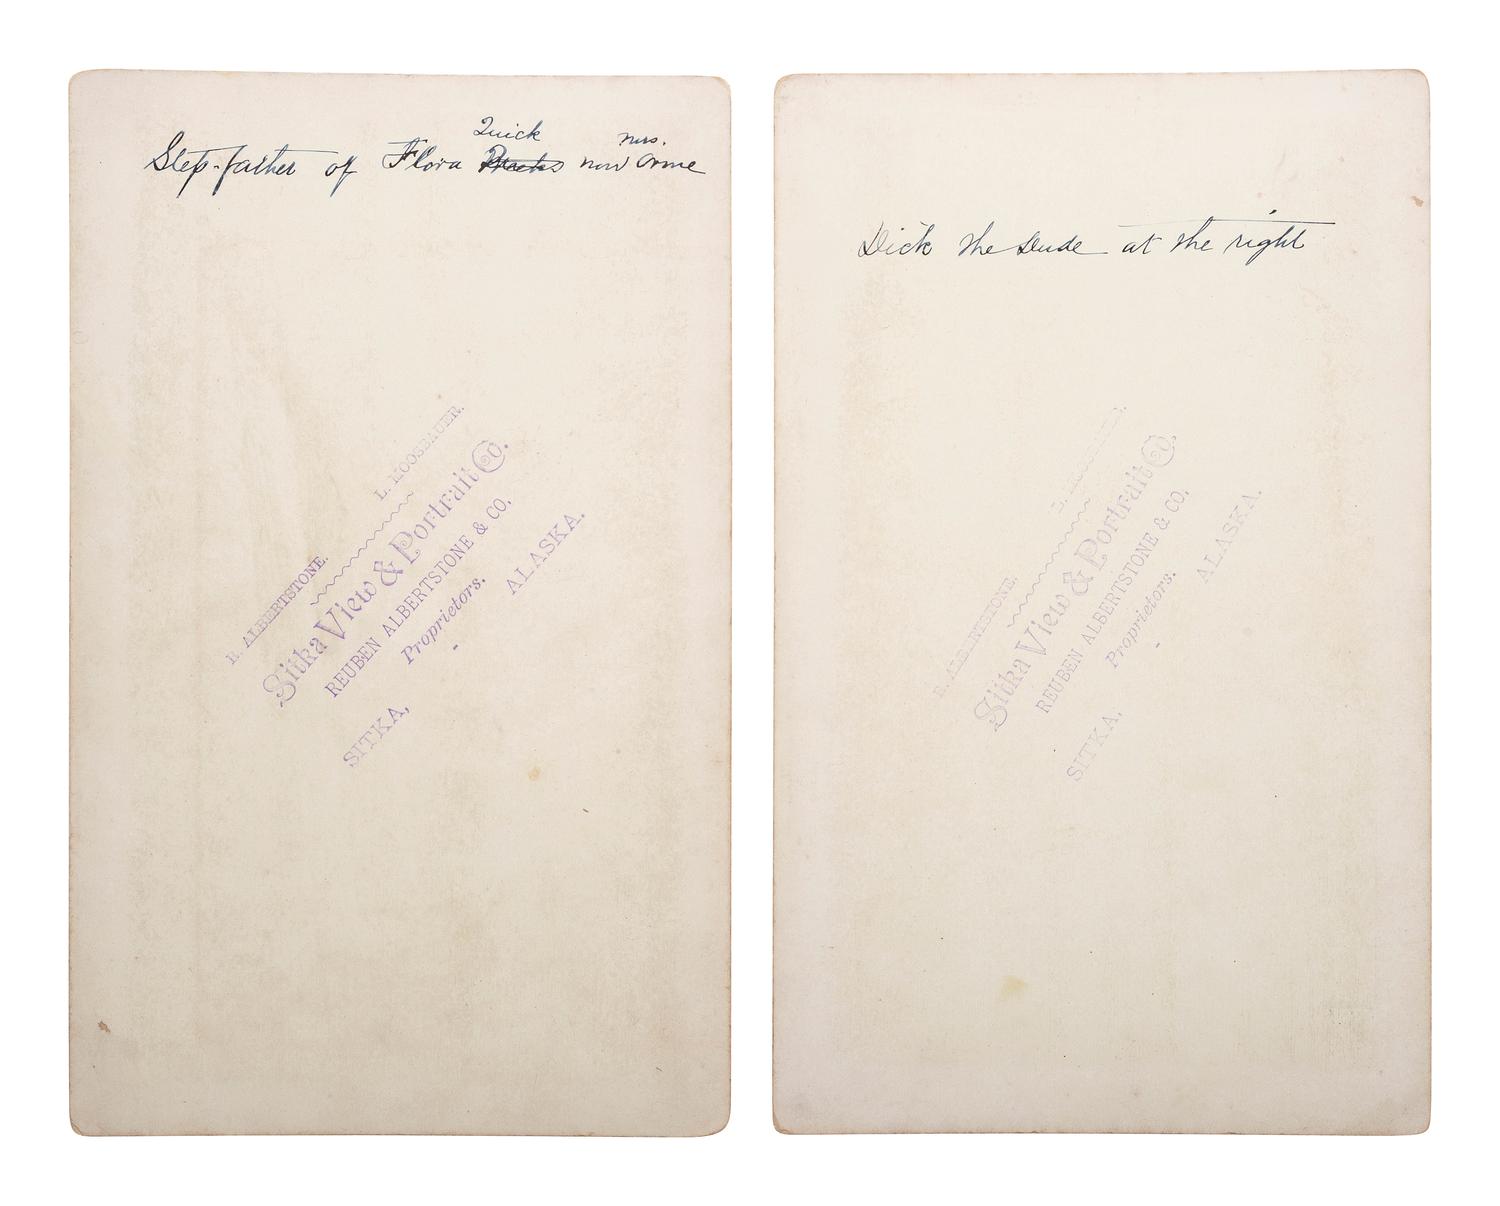 Quick
mrs.
Step-father of Flora now Orme
L. MOOSBAUER.
R. ALBERTSTONE.
Sitka View & Portrait Co.
REUBEN ALBERTSTONE & CO.
Proprietors.
SITKA, ALASKA.
Dick the Dude at the right
L. MOOSBAUER.
R. ALBERTSTONE.
Sitka View & Portrait Co.
REUBEN ALBERTSTONE & CO.
Proprietors.
SITKA, ALASKA.